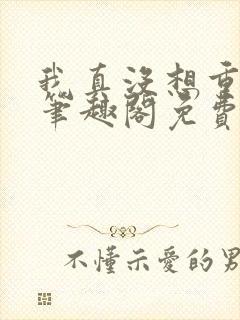 我真没想重
笔趣阁免费
不懂示愛的男